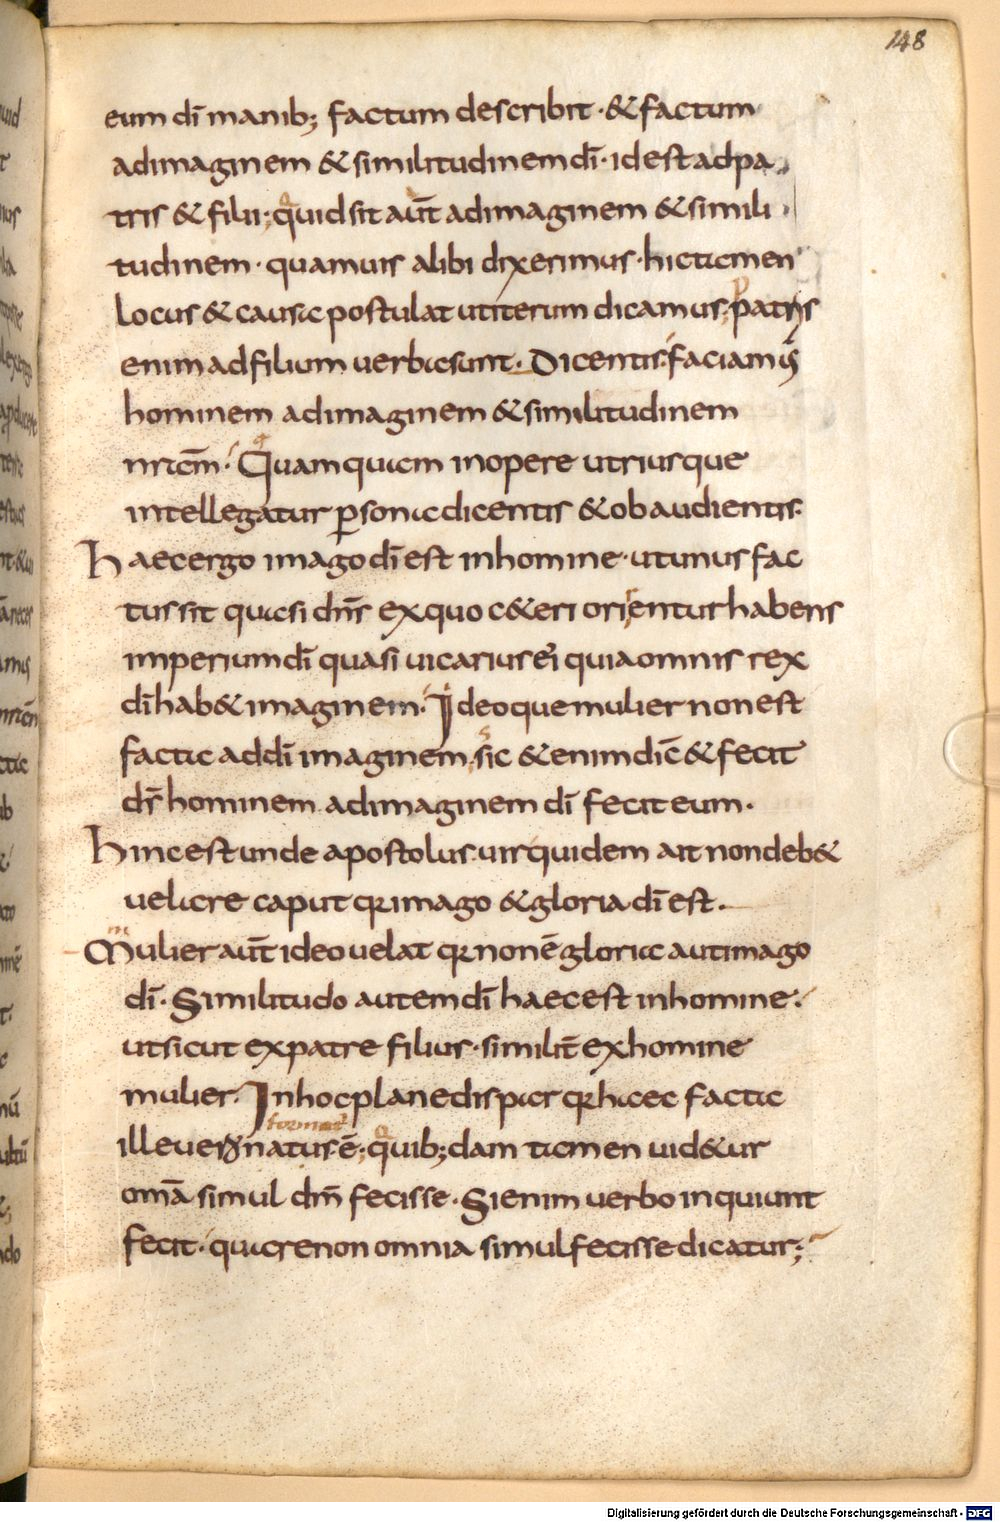 148
eum dī manib; factum describit · & factum
ad imaginem & similitudinem dī · id est ad pa
tris & filii; quid sit aūt ad imaginem & simili
tudinem · quamuis alibi dixerimus · hic tamen
locus & causa postulat ut iterum dicamus; patris
enim ad filium uerba sunt · Dicentis · faciamus
hominem ad imaginem & similitudinem
nram̄ · Quamquam in opere utriusque
intellegatur ꝑsona dicentis & obaudientis ·
Haec ergo imago dī est in homine · ut unus fac
tus sit quasi dn̄s ex quo c&eri orientur habens
imperium dī quasi uicarius ei quia omnis rex
dī hab& imaginem · Ideoque mulier non est
facta ad dī imaginem sic & enim dic̄ & fecit
ds̄ hominem ad imaginem dī fecit eum ·
Hinc est unde apostolus · uir quidem ait non deb&
uelare caput qr imago & gloria dī est ·
Mulier aūt ideo uelat qr non ē gloria aut imago
dī · Similitudo autem dī haec est in homine ·
ut sicut ex patre filius · similit̄ ex homine
mulier · In hoc plane dispar qr haec facta
format
ille uero natus ē; quib; dam tamen uid&ur
omā simul dm̄ fecisse · Si enim uerbo inquiunt
fecit · quare non omnia simul fecisse dicatur;
Digitalisierung gefördert durch die Deutsche Forschungsgemeinschaft - DFG